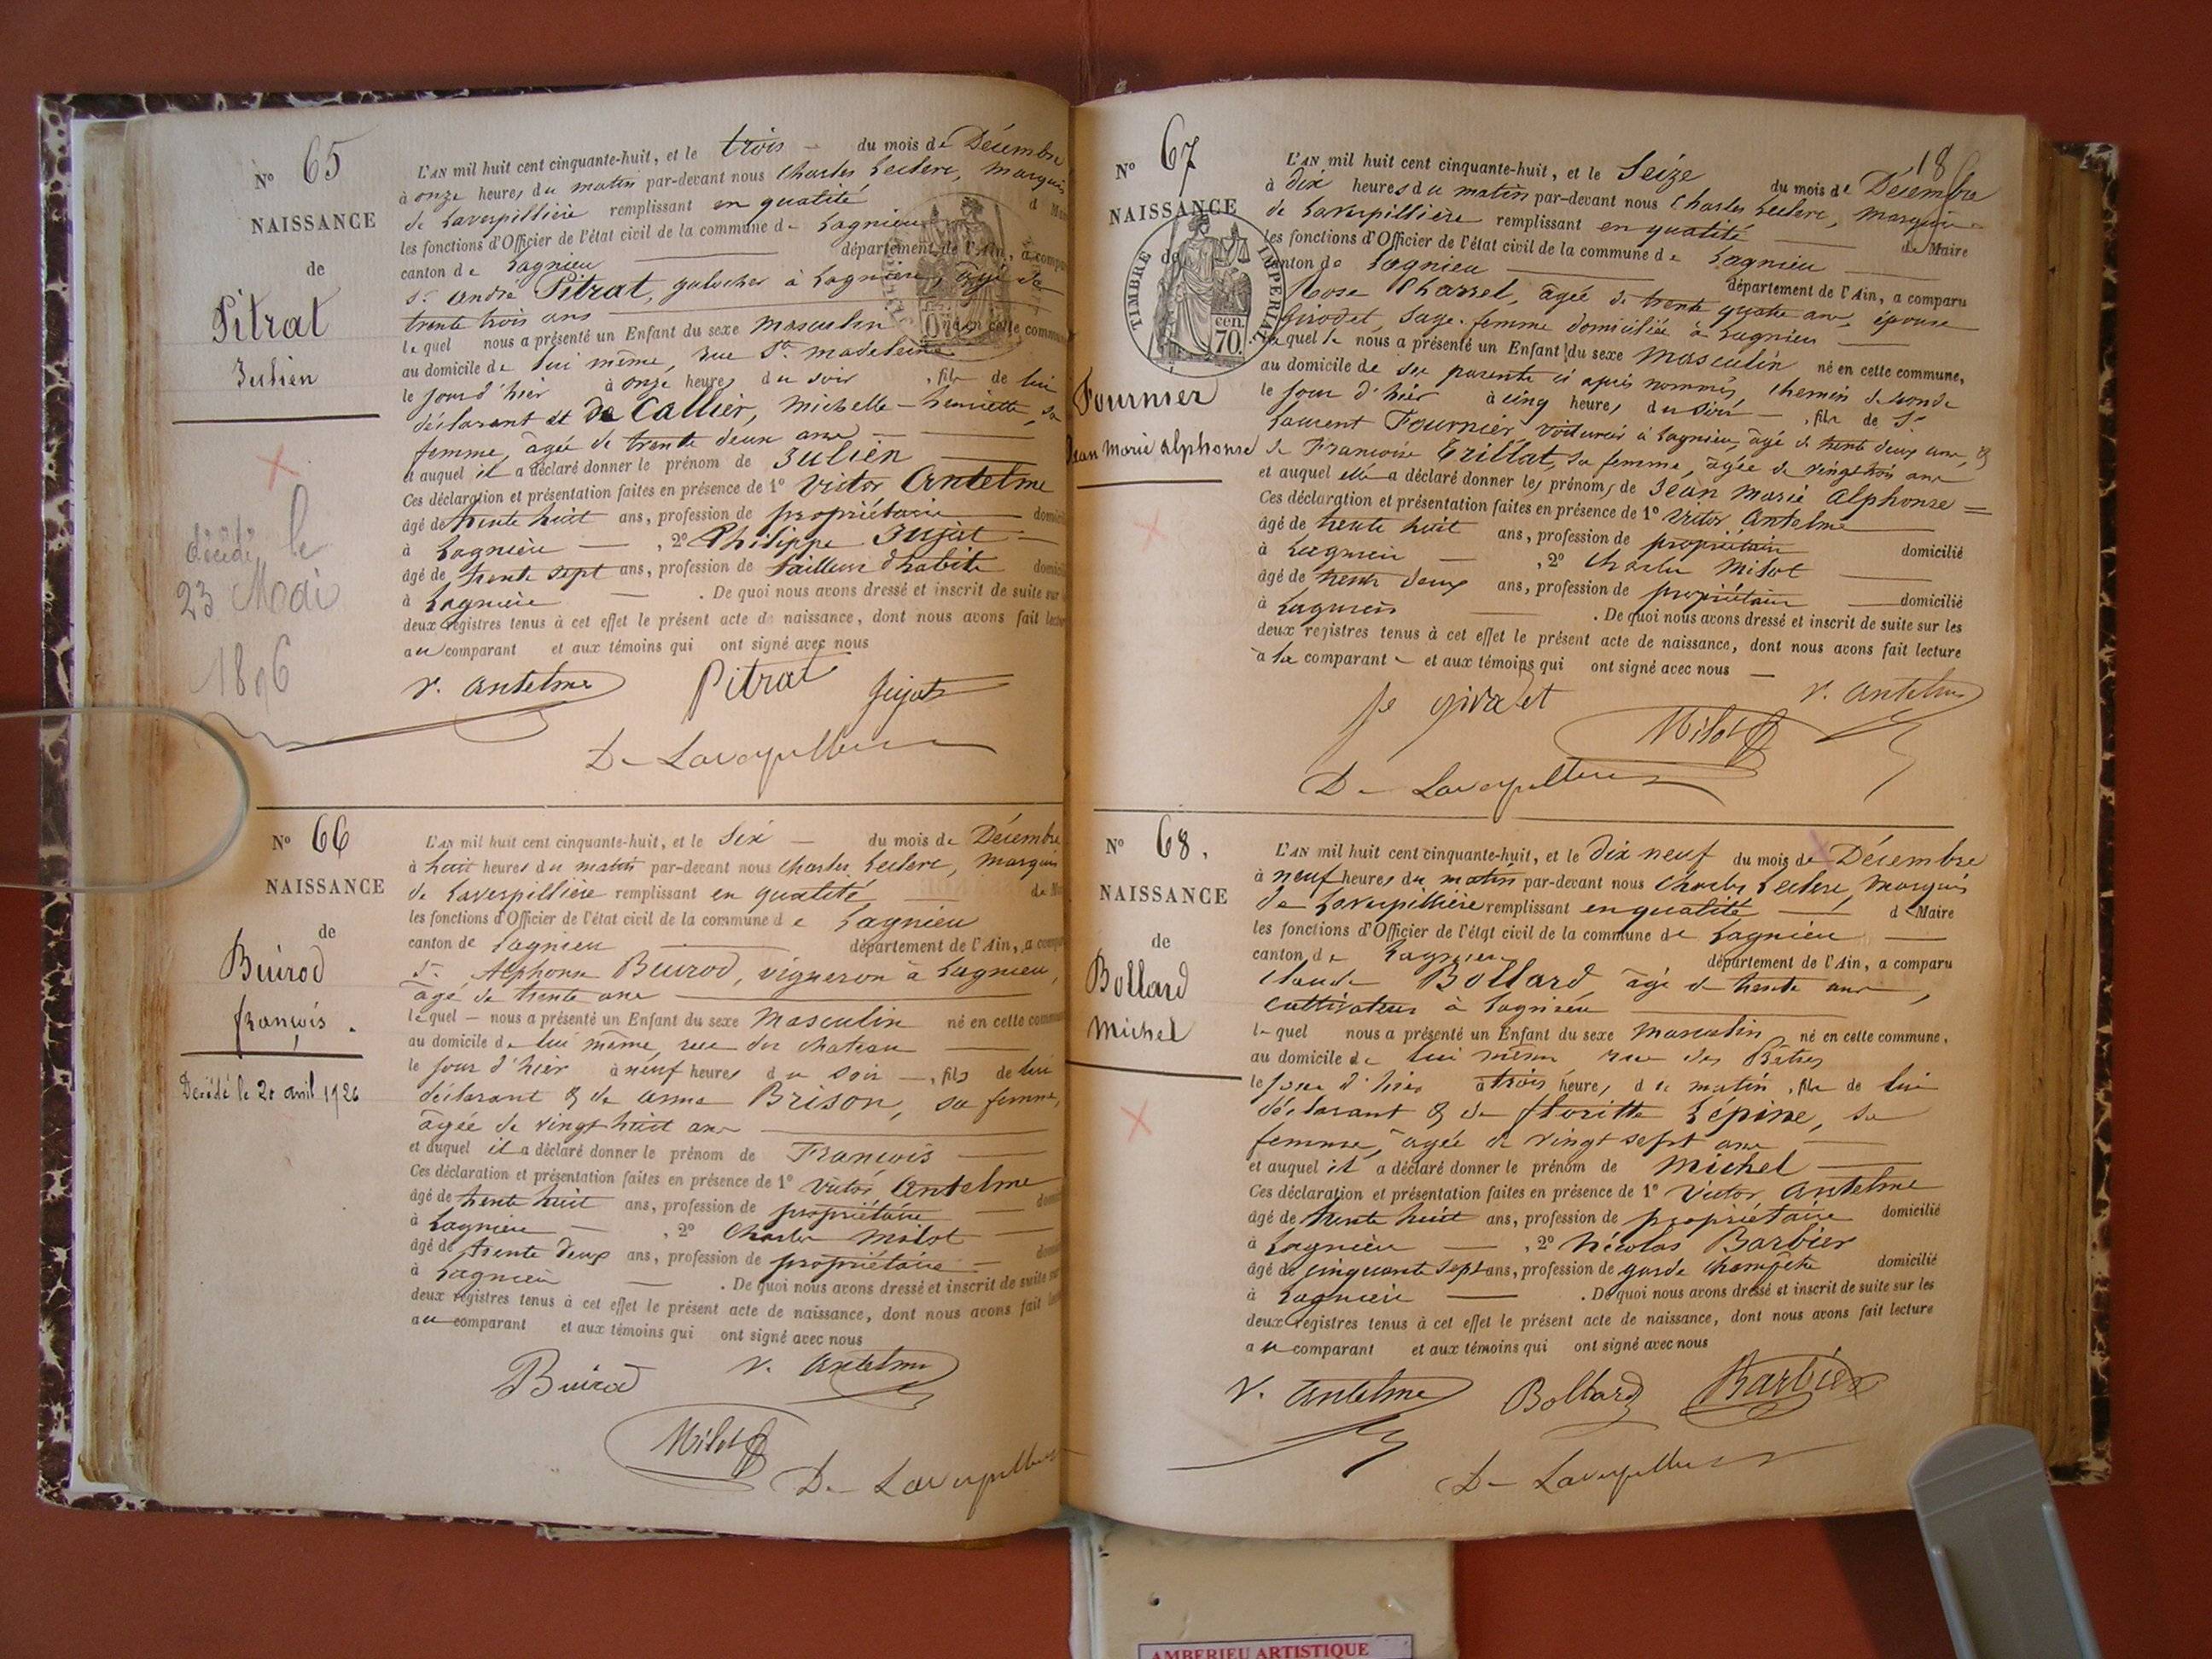 N° 65
NAISSANCE
de
Pitrat
Julien
décédé le
23 Mai
1896
L'AN mil huit cent cinquante-huit, et le trois du mois de Décembre
à onze heures du matin par-devant nous Charles Leclerc, Marquis
de Laverpillière remplissant en qualité d
les fonctions d'Officier de l'état civil de la commune de Lagnieu
canton de Lagnieu département de l'Ain, a compa
Sr André Pitrat, galocher à Lagnieu, âgé de
trente trois ans
lequel nous a présenté un Enfant du sexe Masculin né en cette commune
au domicile de lui même, rue Ste Madeleine
le jour d'hier à onze heures du soir, fils de lui
déclarant et de Callier, Michelle-henriette, sa
femme, âgée de trente deux ans
et auquel il a déclaré donner le prénom de Julien
Ces déclaration et présentation faites en présence de 1° Victor Antelme
âgé de trente huit ans, profession de propriétaire domicil
à Lagnieu, 2° Philippe Jujat
âgé de trente sept ans, profession de tailleur d'habits domici
à Lagnieu. De quoi nous avons dressé et inscrit de suite sur
deux registres tenus à cet effet le présent acte de naissance, dont nous avons fait lecture
au comparant et aux témoins qui ont signé avec nous
V. Antelme Pitrat Jujat
De Laverpilliere
N° 66
NAISSANCE
de
Buirod
françois.
Décédé le 20 avril 1926
L'AN mil huit cent cinquante-huit, et le Six du mois de Décembre
à huit heures du matin par-devant nous Charles Leclerc, Marquis
de Laverpillière remplissant en qualité de
les fonctions d'Officier de l'état civil de la commune de Lagnieu
canton de Lagnieu département de l'Ain, a comp
Sr Alphonse Buirod, vigneron à Lagnieu,
âgé de trente ans
lequel nous a présenté un Enfant du sexe Masculin né en cette commune
au domicile de lui même, rue du chateau
le jour d'hier à neuf heures du soir, fils de lui
déclarant & de anna Brison, sa femme,
âgée de vingt huit ans
et auquel il a déclaré donner le prénom de François
Ces déclaration et présentation faites en présence de 1° Victor Antelme
âgé de trente huit ans, profession de propriétaire domici
à Lagnieu, 2° Charles Milot
âgé de trente deux ans, profession de propriétaire domici
à Lagnieu. De quoi nous avons dressé et inscrit de suite sur
deux registres tenus à cet effet le présent acte de naissance, dont nous avons fait
au comparant et aux témoins qui ont signé avec nous
Buirod V. Antelme
Milot De Laverpilliere
18
N° 67
NAISSANCE
de
TIMBRE IMPERIAL
70 cen.
Fournier
Jean Marie alphonse
L'AN mil huit cent cinquante-huit, et le Seize du mois de Décembre
à dix heures du matin par-devant nous Charles Leclerc, Marquis
de Laverpillière remplissant en qualité de Maire
les fonctions d'Officier de l'état civil de la commune de Lagnieu
canton de Lagnieu département de l'Ain, a comparu
Rose Charrel, âgée de trente quatre ans, épouse
Girodet, Sage-femme domiciliée à Lagnieu
laquelle nous a présenté un Enfant du sexe Masculin né en cette commune,
au domicile de ses parents ci après nommés, chemin de ronde
le jour d'hier à cinq heures du soir, fils de Sr
Laurent Fournier voiturier à Lagnieu, âgé de trente deux ans, &
de Françoise Trillat, sa femme, âgée de vingt trois ans
et auquel elle a déclaré donner les prénoms de Jean Marie Alphonse
Ces déclaration et présentation faites en présence de 1° Victor Antelme
âgé de trente huit ans, profession de propriétaire domicilié
à Lagnieu, 2° Charles Milot
âgé de trente deux ans, profession de propriétaire domicilié
à Lagnieu. De quoi nous avons dressé et inscrit de suite sur les
deux registres tenus à cet effet le présent acte de naissance, dont nous avons fait lecture
à la comparante et aux témoins qui ont signé avec nous
fe girodet V. Antelme
Milot
De Laverpilliere
N° 68.
NAISSANCE
de
Bollard
Michel
L'AN mil huit cent cinquante-huit, et le dix neuf du mois de Décembre
à neuf heures du matin par-devant nous Charles Leclerc, Marquis
de Laverpillière remplissant en qualité de Maire
les fonctions d'Officier de l'état civil de la commune de Lagnieu
canton de Lagnieu département de l'Ain, a comparu
Claude Bollard, âgé de trente ans,
cultivateur à Lagnieu
lequel nous a présenté un Enfant du sexe masculin né en cette commune,
au domicile de lui même rue des
le jour d'hier à trois heures du matin, fils de lui
déclarant & de floritte Lépine, sa
femme, âgée de vingt sept ans
et auquel il a déclaré donner le prénom de Michel
Ces déclaration et présentation faites en présence de 1° Victor Antelme
âgé de trente huit ans, profession de propriétaire domicilié
à Lagnieu, 2° Nicolas Barbier
âgé de cinquante sept ans, profession de garde champêtre domicilié
à Lagnieu. De quoi nous avons dressé et inscrit de suite sur les
deux registres tenus à cet effet le présent acte de naissance, dont nous avons fait lecture
au comparant et aux témoins qui ont signé avec nous
V. Antelme Bollard Barbier
De Laverpilliere
AMBERIEU ARTISTIQUE